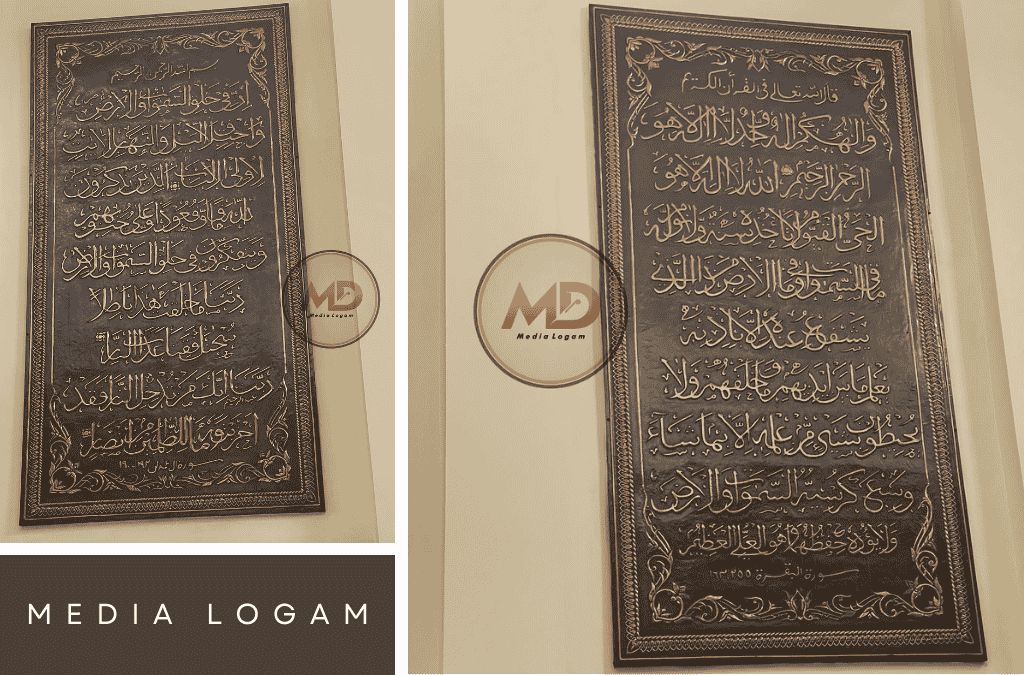 بسم الله الرحمن الرحيم
إن في خلق السموات والأرض
واختلاف الليل والنهار لآيات
لأولي الألباب الذين يذكرون
الله قياما وقعودا وعلى جنوبهم
ويتفكرون في خلق السموات والأرض
ربنا ما خلقت هذا باطلا
سبحانك فقنا عذاب النار
ربنا إنك من تدخل النار فقد
أخزيته وما للظالمين من أنصار
MD
Media Logam
MEDIA LOGAM
قال الله تعالى في القرآن الكريم
وإلهكم إله واحد لا إله إلا هو
الرحمن الرحيم الله لا إله إلا هو
الحي القيوم لا تأخذه سنة ولا نوم له
ما في السموات وما في الأرض من ذا الذي
يشفع عنده إلا بإذنه
يعلم ما بين أيديهم وما خلفهم ولا
يحيطون بشيء من علمه إلا بما شاء
وسع كرسيه السموات والأرض
ولا يؤده حفظهما وهو العلي العظيم
سورة البقرة ١٦٣،٢٥٥
MD
Media Logam